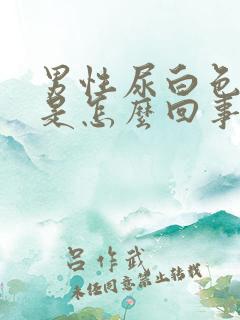 男性尿白色
是怎麼回事
呂作武
未经同意禁止转载